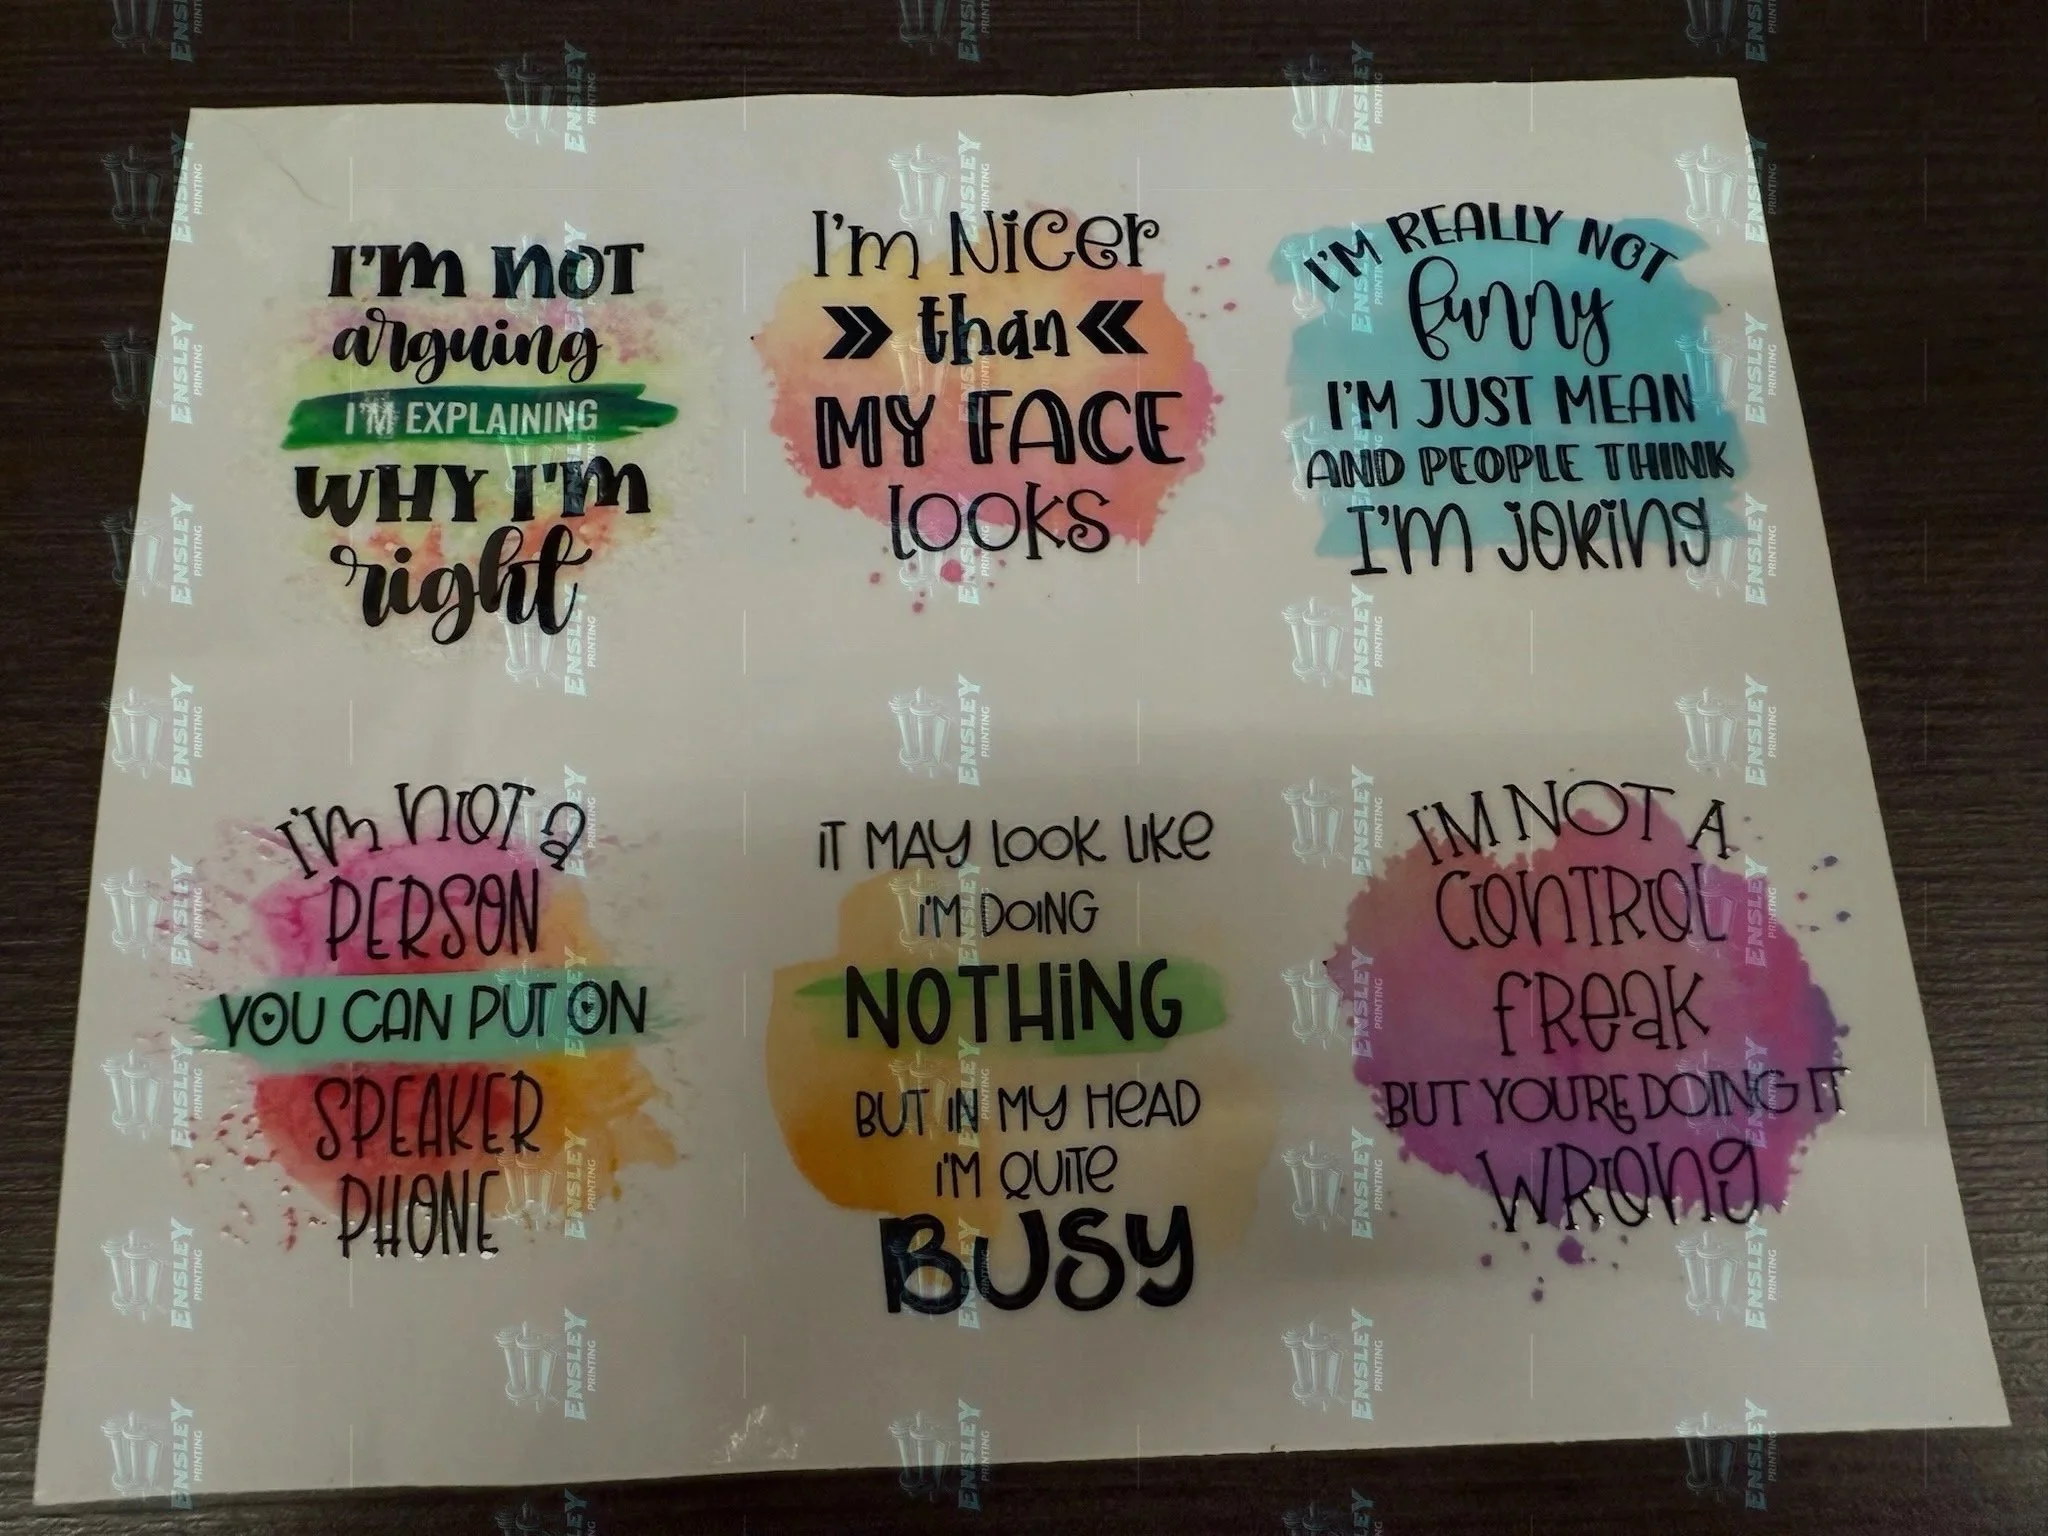 I'm NOT
arguing
I'M EXPLAINING
WHY I'm
right
I'm Nicer
than
MY FACE
LOOKS
I'M REALLY NOT
funny
I'M JUST MEAN
AND PEOPLE THINK
I'M JOKING
I'm NOT a
PERSON
YOU CAN PUT ON
SPEAKER
PHONE
IT MAY LOOK LIKE
I'M DOING
NOTHING
BUT IN MY HEAD
I'M QUITE
BUSY
I'M NOT A
CONTROL
FREAK
BUT YOU'RE DOING IT
WRONG
ENSLEY
PRINTING